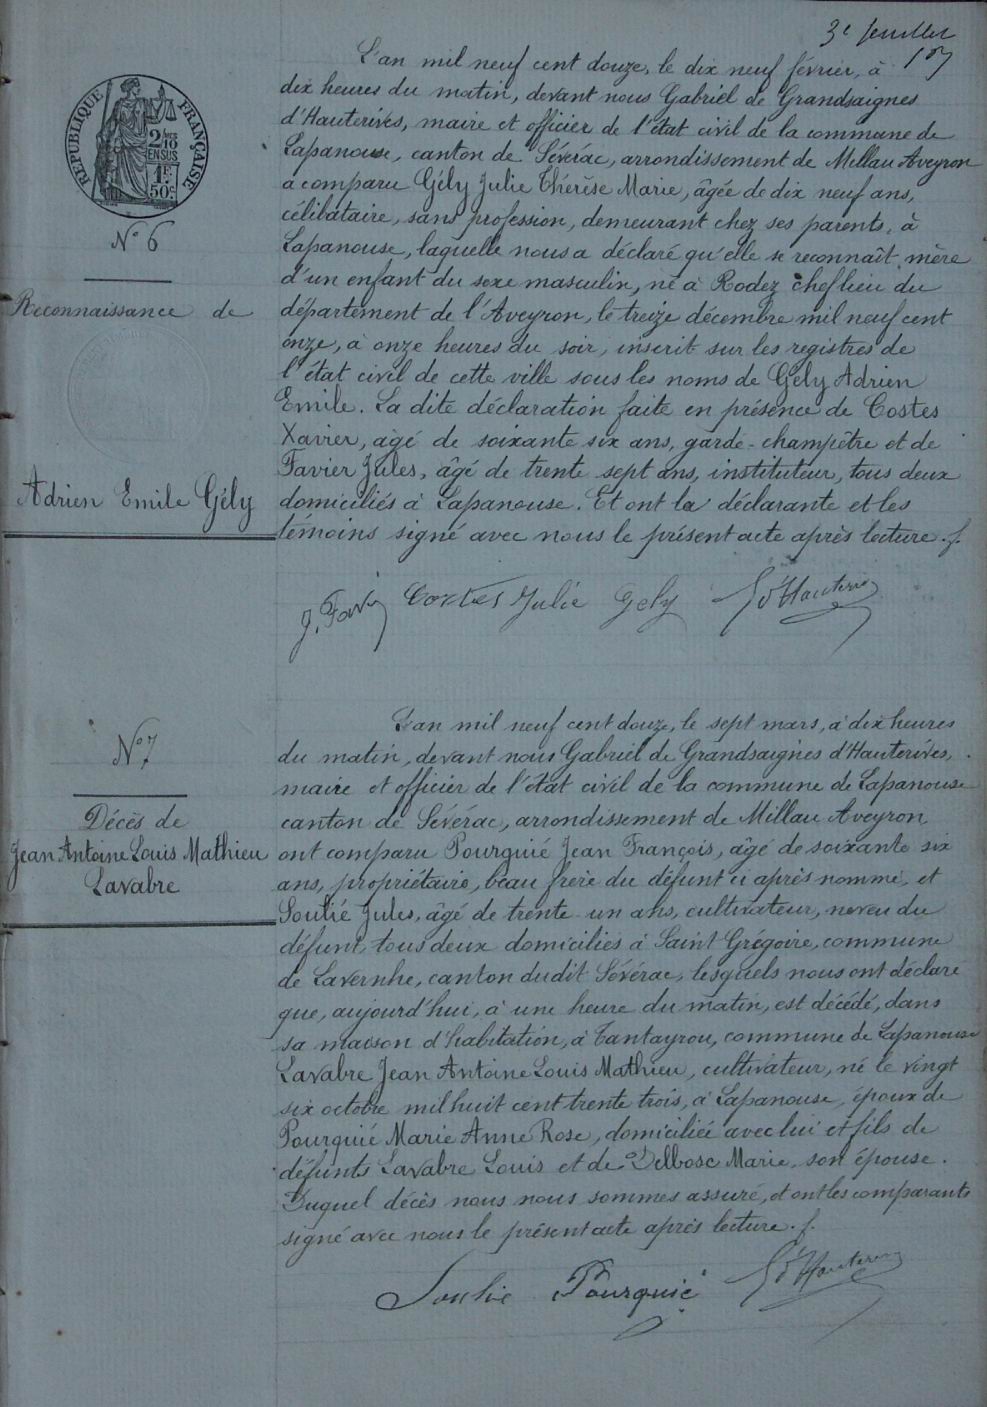 3e feuillet
RÉPUBLIQUE FRANÇAISE
2/10 EN SUS
1F.
50c
L'an mil neuf cent douze, le dix neuf février, à
dix heures du matin, devant nous Gabriel de Grandsaignes
d'Hauterives, maire et officier de l'état civil de la commune de
Lapanouse, canton de Sévérac, arrondissement de Millau Aveyron
a comparu Gély Julie Thérèse Marie, âgée de dix neuf ans,
célibataire, sans profession, demeurant chez ses parents, à
Lapanouse, laquelle nous a déclaré qu'elle se reconnaît mère
d'un enfant du sexe masculin, né à Rodez chef lieu du
département de l'Aveyron, le treize décembre mil neuf cent
onze, à onze heures du soir, inscrit sur les registres de
l'état civil de cette ville sous les noms de Gely Adrien
Emile. La dite déclaration faite en présence de Costes
Xavier, âgé de soixante six ans, garde-champêtre et de
Favier Jules, âgé de trente sept ans, instituteur, tous deux
domiciliés à Lapanouse. Et ont la déclarante et les
témoins signé avec nous le présent acte après lecture.
N° 6
Reconnaissance de
Adrien Emile Gély
J. Favier Costes Julie Gely G d'Hauterives
N° 7
Décès de
Jean Antoine Louis Mathieu
Lavabre
L'an mil neuf cent douze, le sept mars, à dix heures
du matin, devant nous Gabriel de Grandsaignes d'Hauterives,
maire et officier de l'état civil de la commune de Lapanouse
canton de Sévérac, arrondissement de Millau Aveyron
ont comparu Pourquié Jean François, âgé de soixante six
ans, propriétaire, beau frère du défunt ci après nommé, et
Soulié Jules, âgé de trente un ans, cultivateur, neveu du
défunt, tous deux domiciliés à Saint Grégoire, commune
de Lavernhe, canton dudit Sévérac, lesquels nous ont déclaré
que, aujourd'hui, à une heure du matin, est décédé, dans
sa maison d'habitation, à Tantayrou, commune de Lapanouse
Lavabre Jean Antoine Louis Mathieu, cultivateur, né le vingt
six octobre mil huit cent trente trois, à Lapanouse, époux de
Pourquié Marie Anne Rose, domiciliée avec lui et fils de
défunts Lavabre Louis et de Delbosc Marie, son épouse.
Duquel décès nous nous sommes assuré, et ont les comparants
signé avec nous le présent acte après lecture.
Soulié Pourquié G d'Hauterives